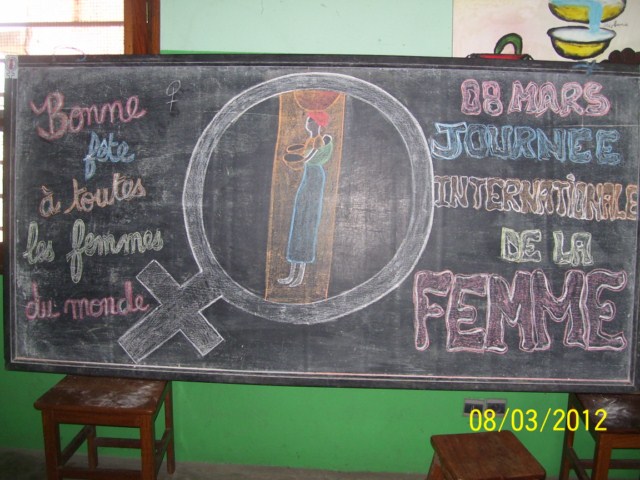 Bonne
fête
à toutes
les femmes
du monde
08 MARS
JOURNEE
INTERNATIONALE
DE LA
FEMME
08/03/2012